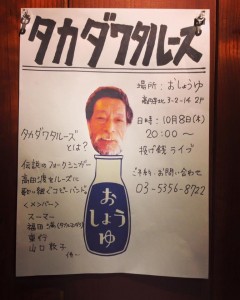 タカダワタルーズ
場所：おしょうゆ
高円寺北3-2-14 2F
日時：10月8日(木)
20:00〜
投げ銭ライブ
ご予約・お問い合わせ
03-5356-8722
タカダワタルーズ
とは？
伝説のフォークシンガー
高田渡をルーズに
歌い継ぐコピーバンド。
＜メンバー＞
スーマー
おしょうゆ